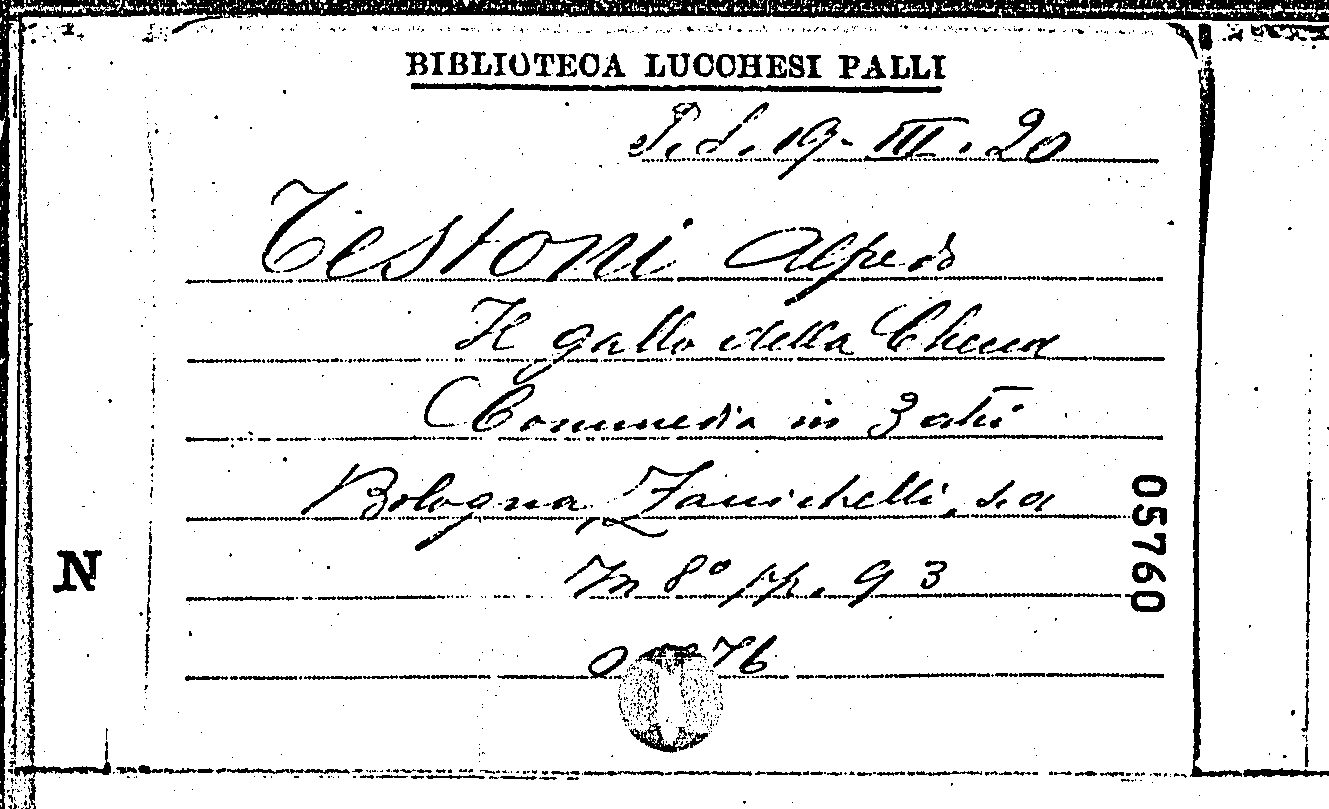 BIBLIOTECA LUCCHESI PALLI
P.S. 19-III.20
Testoni Alfredo
Il gallo della Checca
Commedia in 3 atti
Bologna, Zanichelli, s.a
05760
N
In 8° pp. 93
76